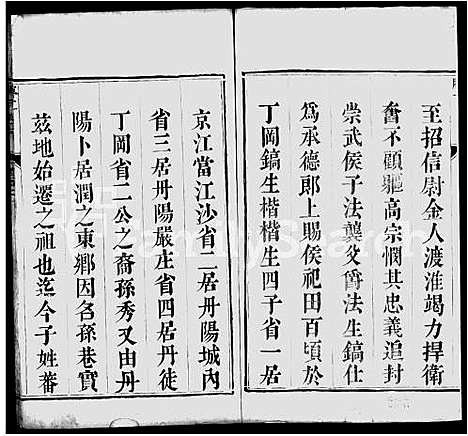 至招信尉金人渡淮竭力捍衛
奮不顧軀高宗憫其忠義追封
崇武侯子法龔父爵法生鎬仕
爲承德郎上賜侯祀田百頃於
丁岡鎬生楷楷生四子省一居
京江當江沙省二居丹陽城內
省三居丹陽嚴庄省四居丹徒
丁岡省二公之裔孫秀又由丹
陽卜居潤之東鄉因名孫巷實
茲地始遷之祖也迄今子姓蕃